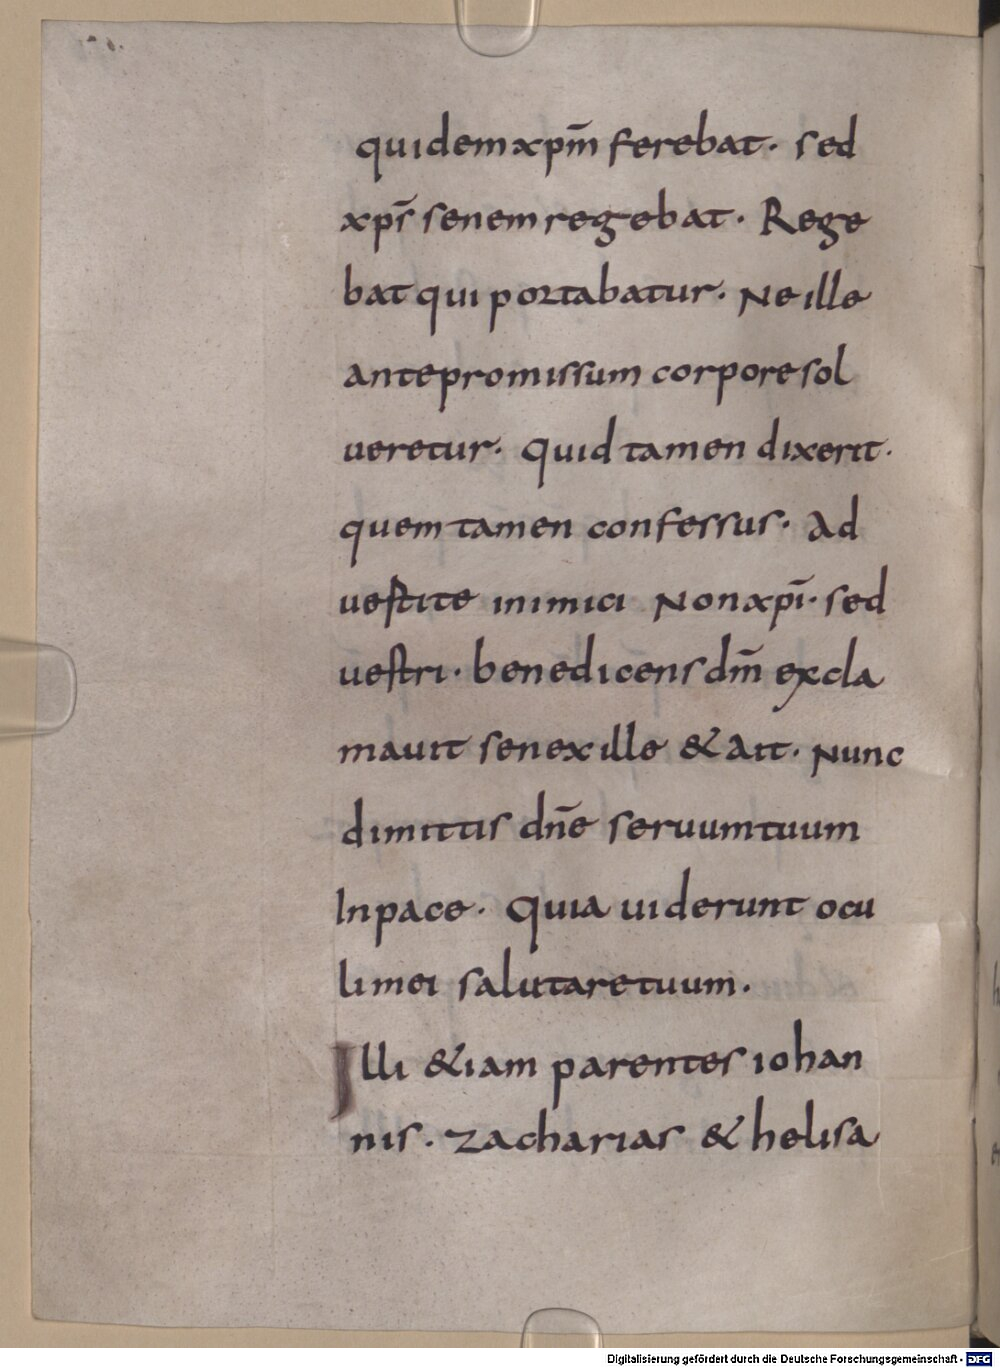 quidem xp̄m ferebat· sed
xp̄s senem regebat· Rege
bat qui portabatur· Ne ille
antepromissum corpore sol
ueretur· Quid tamen dixerit·
quem tamen confessus· Ad
uestite inimici Non xp̄i· sed
uestri· benedicens dm̄ excla
mauit senex ille & ait· Nunc
dimittis dn̄e seruum tuum
In pace· Quia uiderunt ocu
li mei salutare tuum·
Illi &iam parentes iohan
nis· zacharias & helisa
Digitalisierung gefördert durch die Deutsche Forschungsgemeinschaft - DFG